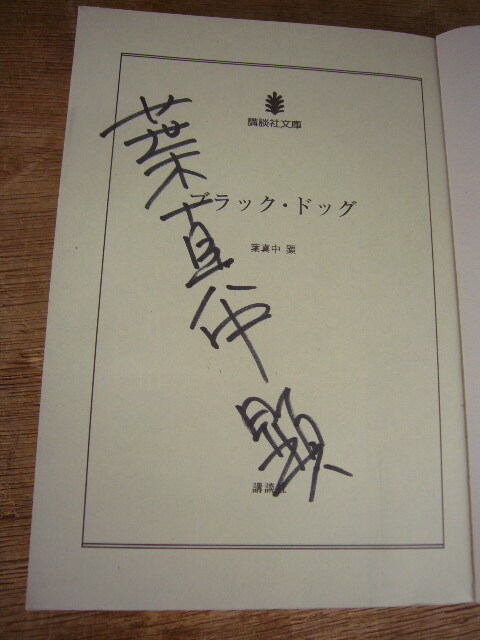 講談社文庫
ブラック・ドッグ
葉真中 顕
葉真中顕
講談社